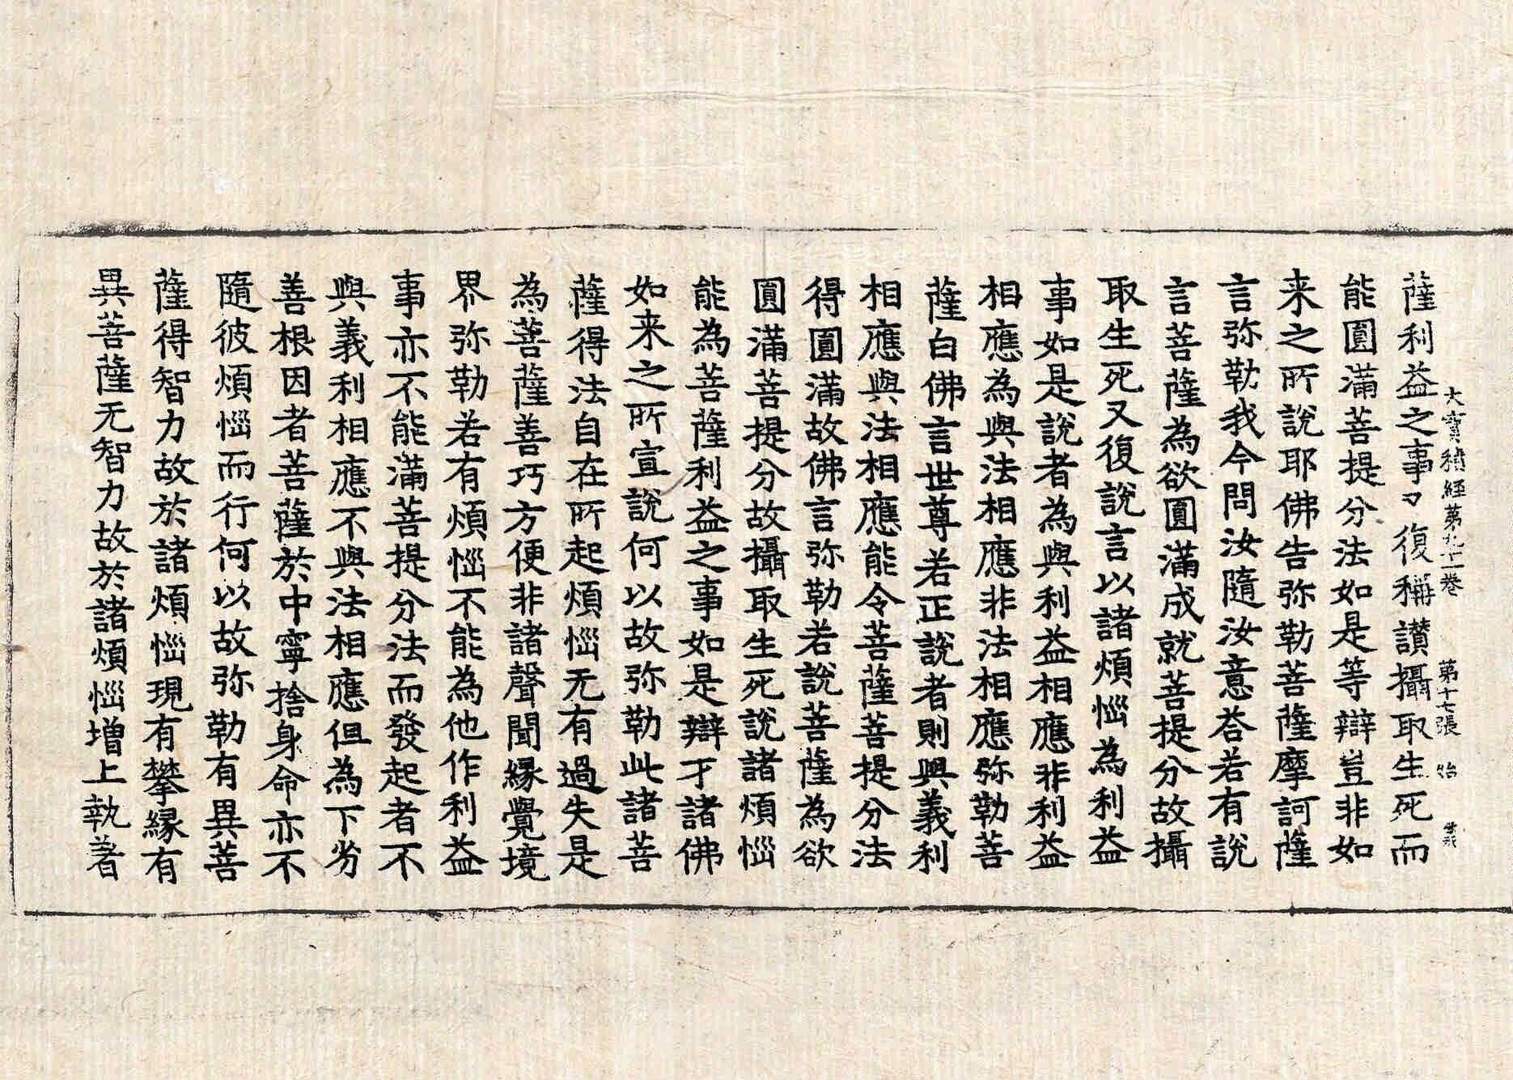 大寳積経第九十二卷 第十七張 始
薩利益之事々復稱讃攝取生死而
能圓滿菩提分法如是等辯豈非如
来之所説耶佛告弥勒菩薩摩訶薩
言弥勒我今問汝隨汝意荅若有説
言菩薩為欲圓滿成就菩提分故攝
取生死又復説言以諸煩惱為利益
事如是説者為與利益相應非利益
相應為與法相應非法相應弥勒菩
薩白佛言世尊若正説者則與義利
相應與法相應能令菩薩菩提分法
得圓滿故佛言弥勒若説菩薩為欲
圓滿菩提分故攝取生死説諸煩惱
能為菩薩利益之事如是辯才諸佛
如来之所宣説何以故弥勒此諸菩
薩得法自在所起煩惱无有過失是
為菩薩善巧方便非諸聲聞緣覺境
界弥勒若有煩惱不能為他作利益
事亦不能滿菩提分法而發起者不
與義利相應不與法相應但為下劣
善根因者菩薩於中寧捨身命亦不
隨彼煩惱而行何以故弥勒有異菩
薩得智力故於諸煩惱現有攀緣有
異菩薩无智力故於諸煩惱増上執著